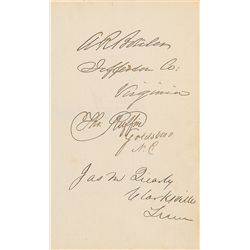 A R Boteler
Jefferson Co:
Virginia
Tho. Ruffin
Goldsboro
N.C.
Jas M Quarles
Clarksville
Tenn